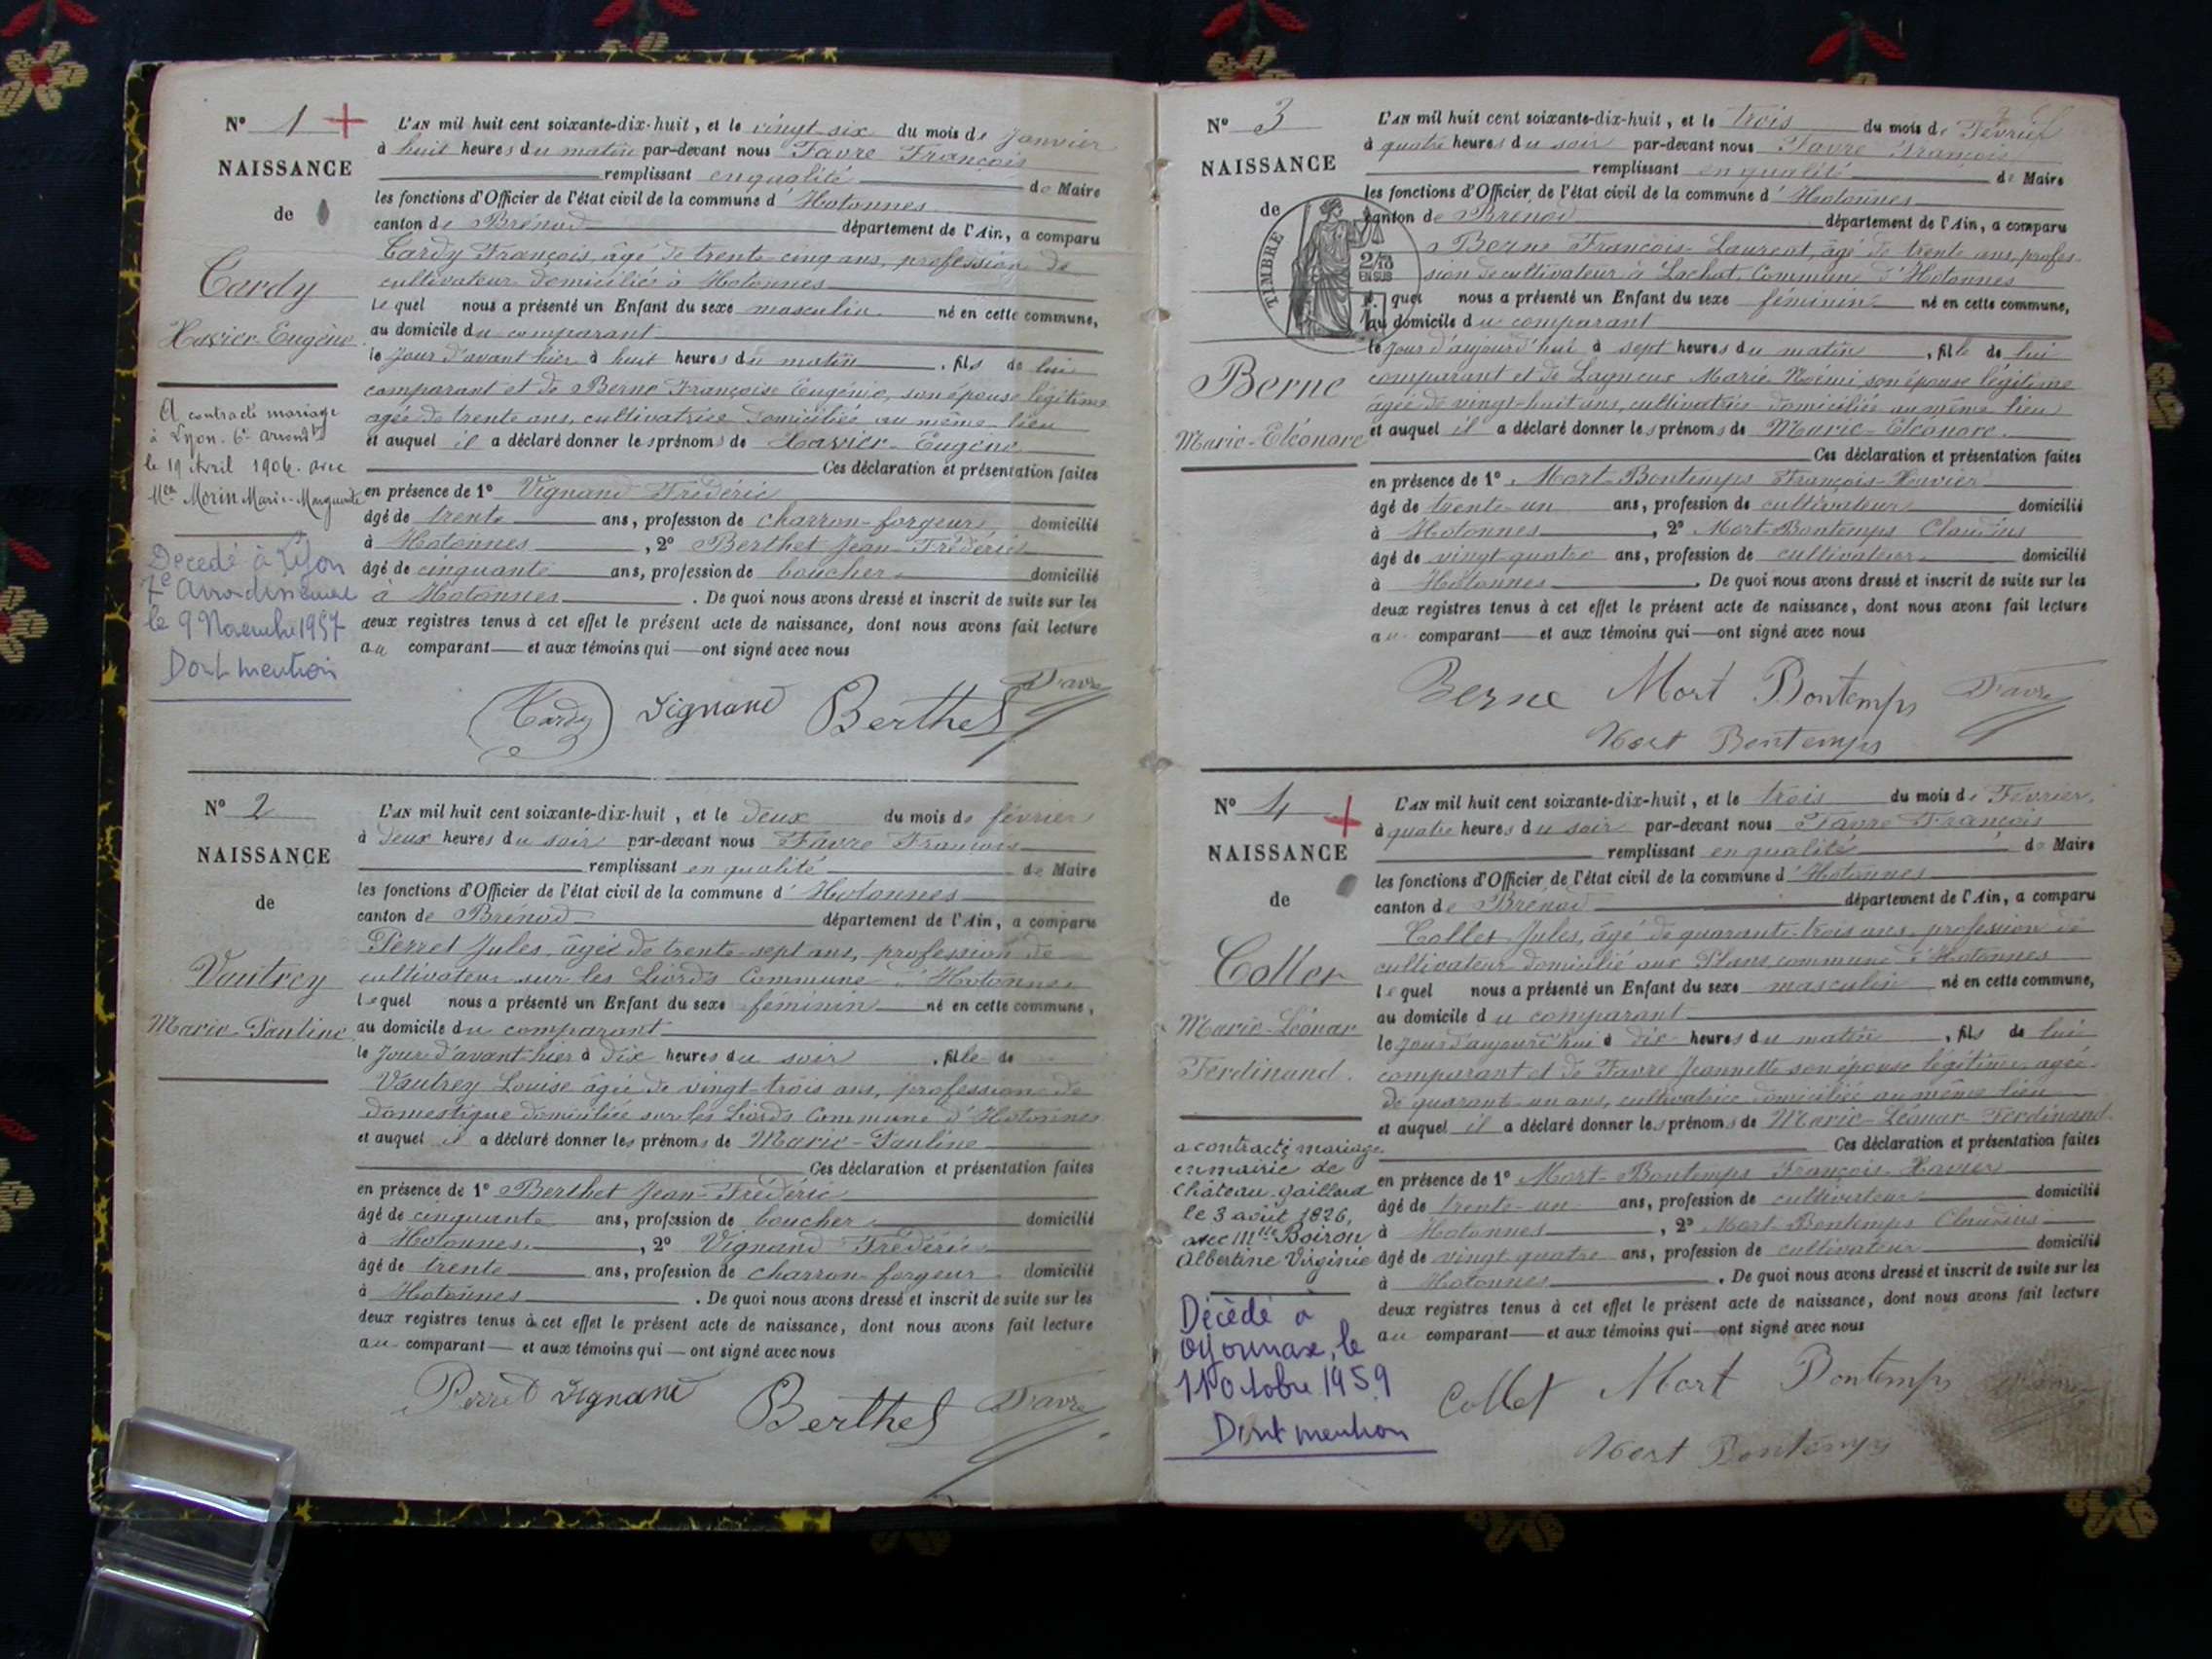 N° 1 +
NAISSANCE
de
Tardy
Xavier-Eugène
A contracté mariage
à Lyon. 6e arrondt
le 19 Avril 1906. avec
Morin Marie-Marguerite
Décédé à Lyon
7e arrondissement
le 9 Novembre 1957
Dont mention
L'AN mil huit cent soixante-dix-huit, et le vingt-six du mois de Janvier
à huit heures du matin par-devant nous Favre François
remplissant en qualité de Maire
les fonctions d'Officier de l'état civil de la commune d'Hotonnes
canton de Brénod département de l'Ain, a comparu
Tardy François, âgé de trente-cinq ans, profession de
cultivateur domicilié à Hotonnes
lequel nous a présenté un Enfant du sexe masculin né en cette commune,
au domicile du comparant
le jour d'avant hier à huit heures du matin, fils de lui
comparant et de Berne Françoise Eugénie, son épouse légitime
agée de trente ans, cultivatrice domiciliée au même lieu
et auquel il a déclaré donner les prénoms de Xavier-Eugène
Ces déclaration et présentation faites
en présence de 1° Vignand Frédéric
âgé de trente ans, profession de charron-forgeur domicilié
à Hotonnes, 2° Berthet Jean-Frédéric
âgé de cinquante ans, profession de boucher domicilié
à Hotonnes. De quoi nous avons dressé et inscrit de suite sur les
deux registres tenus à cet effet le présent acte de naissance, dont nous avons fait lecture
au comparant et aux témoins qui ont signé avec nous
Tardy Vignand Berthet Favre
N° 2
NAISSANCE
de
Vautrey
Marie-Pauline
L'AN mil huit cent soixante-dix-huit, et le deux du mois de février
à deux heures du soir par-devant nous Favre François
remplissant en qualité de Maire
les fonctions d'Officier de l'état civil de la commune d'Hotonnes
canton de Brénod département de l'Ain, a comparu
Perret Jules, âgé de trente-sept ans, profession de
cultivateur sur les Liords Commune d'Hotonnes
lequel nous a présenté un Enfant du sexe féminin né en cette commune,
au domicile du comparant
le jour d'avant hier à dix heures du soir, fille de
Vautrey Louise âgée de vingt-trois ans, profession de
domestique domiciliée sur les Liords Commune d'Hotonnes
et auquel il a déclaré donner les prénoms de Marie-Pauline
Ces déclaration et présentation faites
en présence de 1° Berthet Jean-Frédéric
âgé de cinquante ans, profession de boucher domicilié
à Hotonnes, 2° Vignand Frédéric
âgé de trente ans, profession de charron forgeur domicilié
à Hotonnes. De quoi nous avons dressé et inscrit de suite sur les
deux registres tenus à cet effet le présent acte de naissance, dont nous avons fait lecture
au comparant et aux témoins qui ont signé avec nous
Perret Vignand Berthet Favre
N° 3
NAISSANCE
de
TIMBRE
2/10
EN SUS
Berne
Marie-Eléonore
L'AN mil huit cent soixante-dix-huit, et le trois du mois de Février
à quatre heures du soir par-devant nous Favre François
remplissant en qualité de Maire
les fonctions d'Officier de l'état civil de la commune d'Hotonnes
canton de Brénod département de l'Ain, a comparu
Berne François-Laurent, âgé de trente ans, profes-
sion de cultivateur à Lachat Commune d'Hotonnes
quel nous a présenté un Enfant du sexe féminin né en cette commune,
au domicile du comparant
le jour d'aujourd'hui à sept heures du matin, fille de lui
comparant et de Lagneux Marie Noémi son épouse légitime
âgée de vingt-huit ans, cultivatrice domiciliée au même lieu
et auquel il a déclaré donner les prénoms de Marie-Eléonore
Ces déclaration et présentation faites
en présence de 1° Mort-Bontemps François-Xavier
âgé de trente-un ans, profession de cultivateur domicilié
à Hotonnes, 2° Mort-Bontemps Claudius
âgé de vingt quatre ans, profession de cultivateur domicilié
à Hotonnes. De quoi nous avons dressé et inscrit de suite sur les
deux registres tenus à cet effet le présent acte de naissance, dont nous avons fait lecture
au comparant et aux témoins qui ont signé avec nous
Berne Mort Bontemps Favre
Mort Bontemps
N° 4 +
NAISSANCE
de
Collet
Marie-Léonar
Ferdinand
a contracté mariage
en mairie de
Château-Gaillard
le 3 août 1826,
avec Mlle Boiron
Albertine Virginie
Décédé à
Oyonnax, le
11 Octobre 1959
Dont mention
L'AN mil huit cent soixante-dix-huit, et le trois du mois de Février
à quatre heures du soir par-devant nous Favre François
remplissant en qualité de Maire
les fonctions d'Officier de l'état civil de la commune d'Hotonnes
canton de Brénod département de l'Ain, a comparu
Collet Jules, âgé de quarante-trois ans, profession de
cultivateur domicilié aux Plans commune d'Hotonnes
lequel nous a présenté un Enfant du sexe masculin né en cette commune,
au domicile du comparant
le jour d'aujourd'hui à dix heures du matin, fils de lui
comparant et de Favre Jeannette son épouse légitime, agée
de quarant-un ans, cultivatrice domiciliée au même lieu
et auquel il a déclaré donner les prénoms de Marie-Léonar Ferdinand
Ces déclaration et présentation faites
en présence de 1° Mort-Bontemps François-Xavier
âgé de trente-un ans, profession de cultivateur domicilié
à Hotonnes, 2° Mort-Bontemps Claudius
âgé de vingt quatre ans, profession de cultivateur domicilié
à Hotonnes. De quoi nous avons dressé et inscrit de suite sur les
deux registres tenus à cet effet le présent acte de naissance, dont nous avons fait lecture
au comparant et aux témoins qui ont signé avec nous
Collet Mort Bontemps Favre
Mort Bontemps